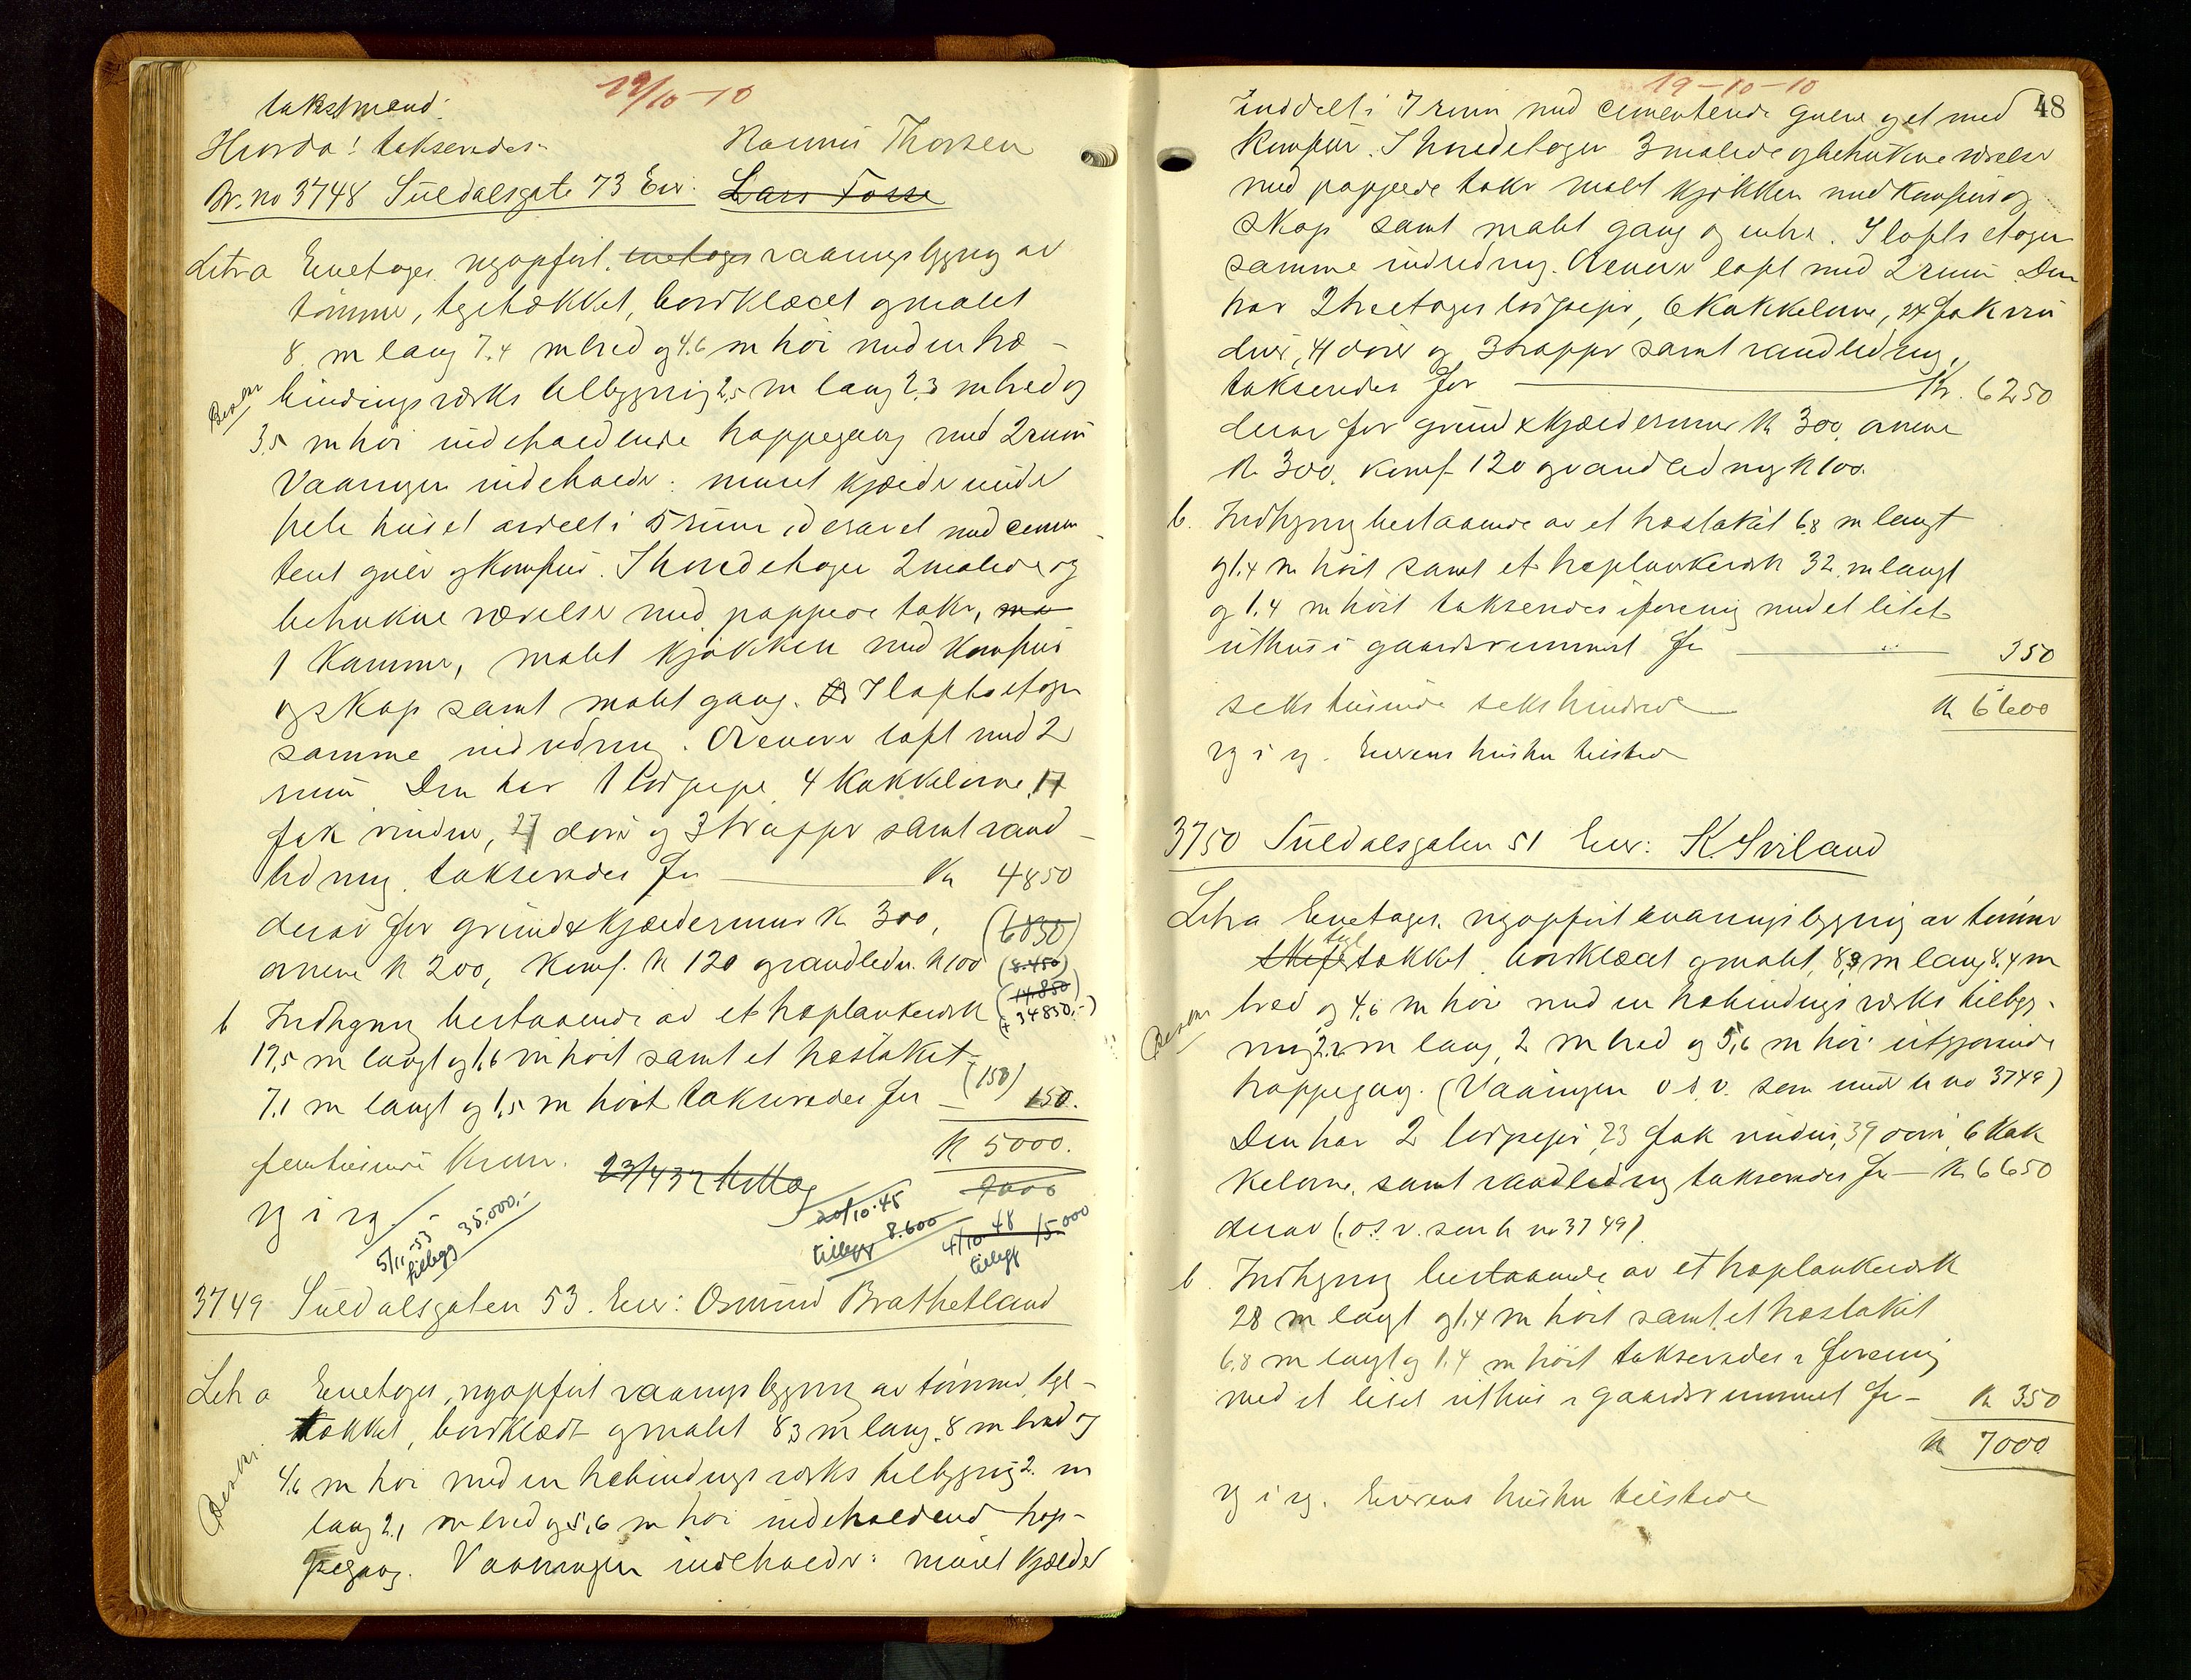 19/10-10
takstmænd:
Hvorda! takseredes
Rasmus Thorsen
Br. no 3748 Suldalsgate 73 Eier: Lars Fosse
Litra Enetages nyopført, enetages vaaningsbygning av
tømmer, teglstækket, bordklædt og malet
8 m lang 7.4 m bred og 4.6 m høi med en træ-
bindingsværks tilbygning 2,5 m lang 2,3 m bred og
3,5 m høi indeholdende trappegang med 2 rum
Vaaningen indeholder: muret kjælder under
hele huset avdelt i 5 rum, derav et med cemen-
tert gulv og komfur. I hovedetagen 2 malede og
betrukne værelser med pappede take, ma
1 kammer, malet kjøkken med komfur
og skap samt malet gang. I loftsetagen
samme indredning. Øvenover loft med 2
rum. Den har 1 lodpipe, 4 kakkelovne, 17
fak vinduer, 27 dører og 3 trapper samt vand-
ledning, takseredes for Kr 4850
derav for grund & kjældermur Kr 300,
ovnene Kr 200, Komf. Kr 120 og vandledn. Kr 100
(6850)
(8.450)
(14.850)
(+34850,-)
b Indhegning bestaaende av et træplankeværk
19,5 m langt og 1,6 m høit samt et træstaket
7.1 m langt og 1,5 m høit takseredes for (150) 150.
Kr 5000.
femtusinde Kroner.
9000
og i og.
5/11-53 tillegg 35.000,-
20/10-45 tillegg 8.600
4/10 48 tillegg 15000
3749 Suldalsgaten 53. Eier: Osmund Brathetland
Litr a Enetages, nyopført vaaningsbygning av tømmer, tegl-
tækket, bordklædt og malet 8,3 m lang, 8 m bred og
4,6 m høi med en træbindingsværks tilbygning 2. m
lang 2,1 m bred og 5,6 m høi indeholdend trap-
pegang. Vaaningen indeholder: muret kjælder
19-10-10
48
inddelt i 7 rum med cementerede gulve og et med
komfur. I hovedetagen 3 malede og betrukne værelser
med pappede take malet kjøkken med komfur og
skap samt malet gang og entre. I loftsetagen
samme indredning. Øvenover loft med 2 rum. Den
har 2 treetages lodpiper, 6 kakkelovne, 24 fak vin
duer, 41 dører og 3 trapper samt vandledning,
takseredes for Kr. 6250
derav for grund & kjældermur Kr 300, ovnene
Kr 300, komf 120 og vandledning Kr 100.
b. Indhegning bestaaende av et træstaket 6,8 m langt
og 1.4 m høit samt et træplankeværk 32 m langt
og 1,4 m høit takseredes i forening med et litet
uthus i gaardsrummet for 350
Kr 6600
seks tusinde seks hundrede
og i og. Eierens hustru tilstede
3750 Suldalsgaten 51 Eier: K. Sviland
Litr a Enetages, nyopført vaaningsbygning av tømmer
skifer tegl tækket, bordklædt og malet, 8,3 m lang 8.4 m
bred og 4,6 m høi med en træbindingsværks tilbyg-
ning 2.2 m lang, 2 m bred og 5,6 m høi utgjørende
trappegag. (Vaaningen o.s.v. som under br no 3749)
Den har 2 lodpiper, 23 fak vinduer, 39 dører, 6 kak
kelovne, samt vandledning takseredes for Kr 6650
derav (o.s.v. som br no 3749)
b. Indhegning bestaaende av et træplankeværk
28 m langt og 1.4 m høit samt et træstaket
6,8 m langt og 1.4 m høit takseredes i forening
med et litet uthus i gaardsrummet for Kr 350
Kr 7000
og i og. Eierens hustru tilstede